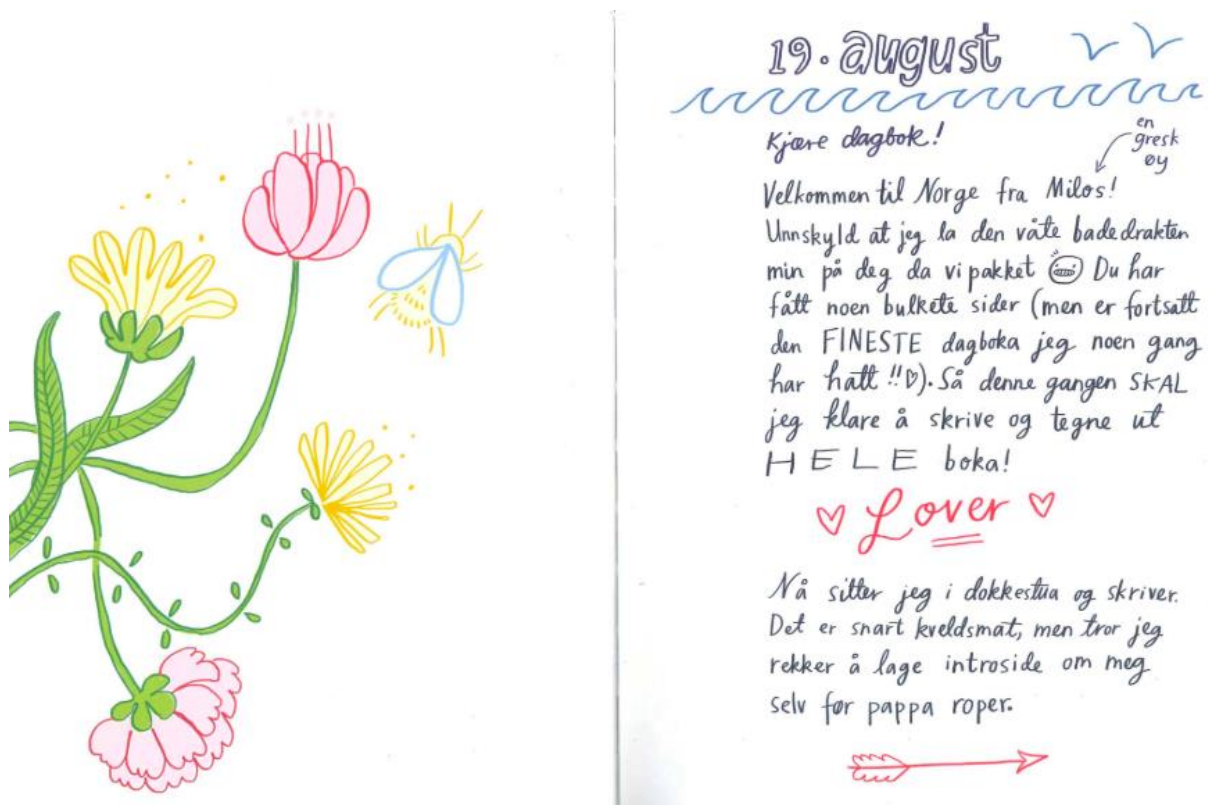 19. august
en
gresk
øy
Kjære dagbok!
Velkommen til Norge fra Milos!
Unnskyld at jeg la den våte badedrakten
min på deg da vi pakket Du har
fått noen bulkete sider (men er fortsatt
den FINESTE dagboka jeg noen gang
har hatt!!♡). Så denne gangen SKAL
jeg klare å skrive og tegne ut
HELE boka!
♡ Lover ♡
Nå sitter jeg i dokkestua og skriver.
Det er snart kveldsmat, men tror jeg
rekker å lage introside om meg
selv før pappa roper.